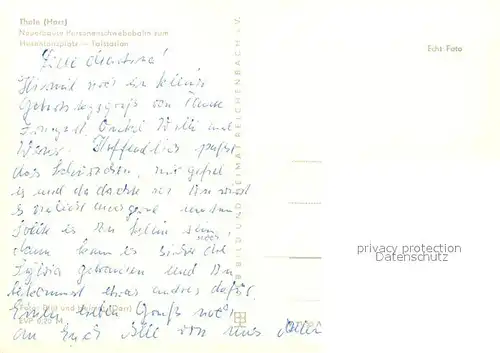 Thale (Harz)
Neuerbaute Personenschwebebahn zum
Hexentanzplatz — Talstation
Echt Foto
Liebe
Hiermit noch ein kleiner
Geburtstagsgruß von Tante
Irmgard, Onkel Willi und
Hoffentlich paßt
das mir gefiel
es und da dachte ich Du wirst
es vielleicht auch gern
Sollte es Dir zu klein sein,
dann kann es sicher noch die
Sylvia gebrauchen und Du
bekommst etwas anderes dafür.
Einen lieben Gruß noch
an Euch Alle von uns Allen
BILD UND HEIMAT REICHENBACH i. V.
privacy protection
Datenschutz
EVP 0,20 M